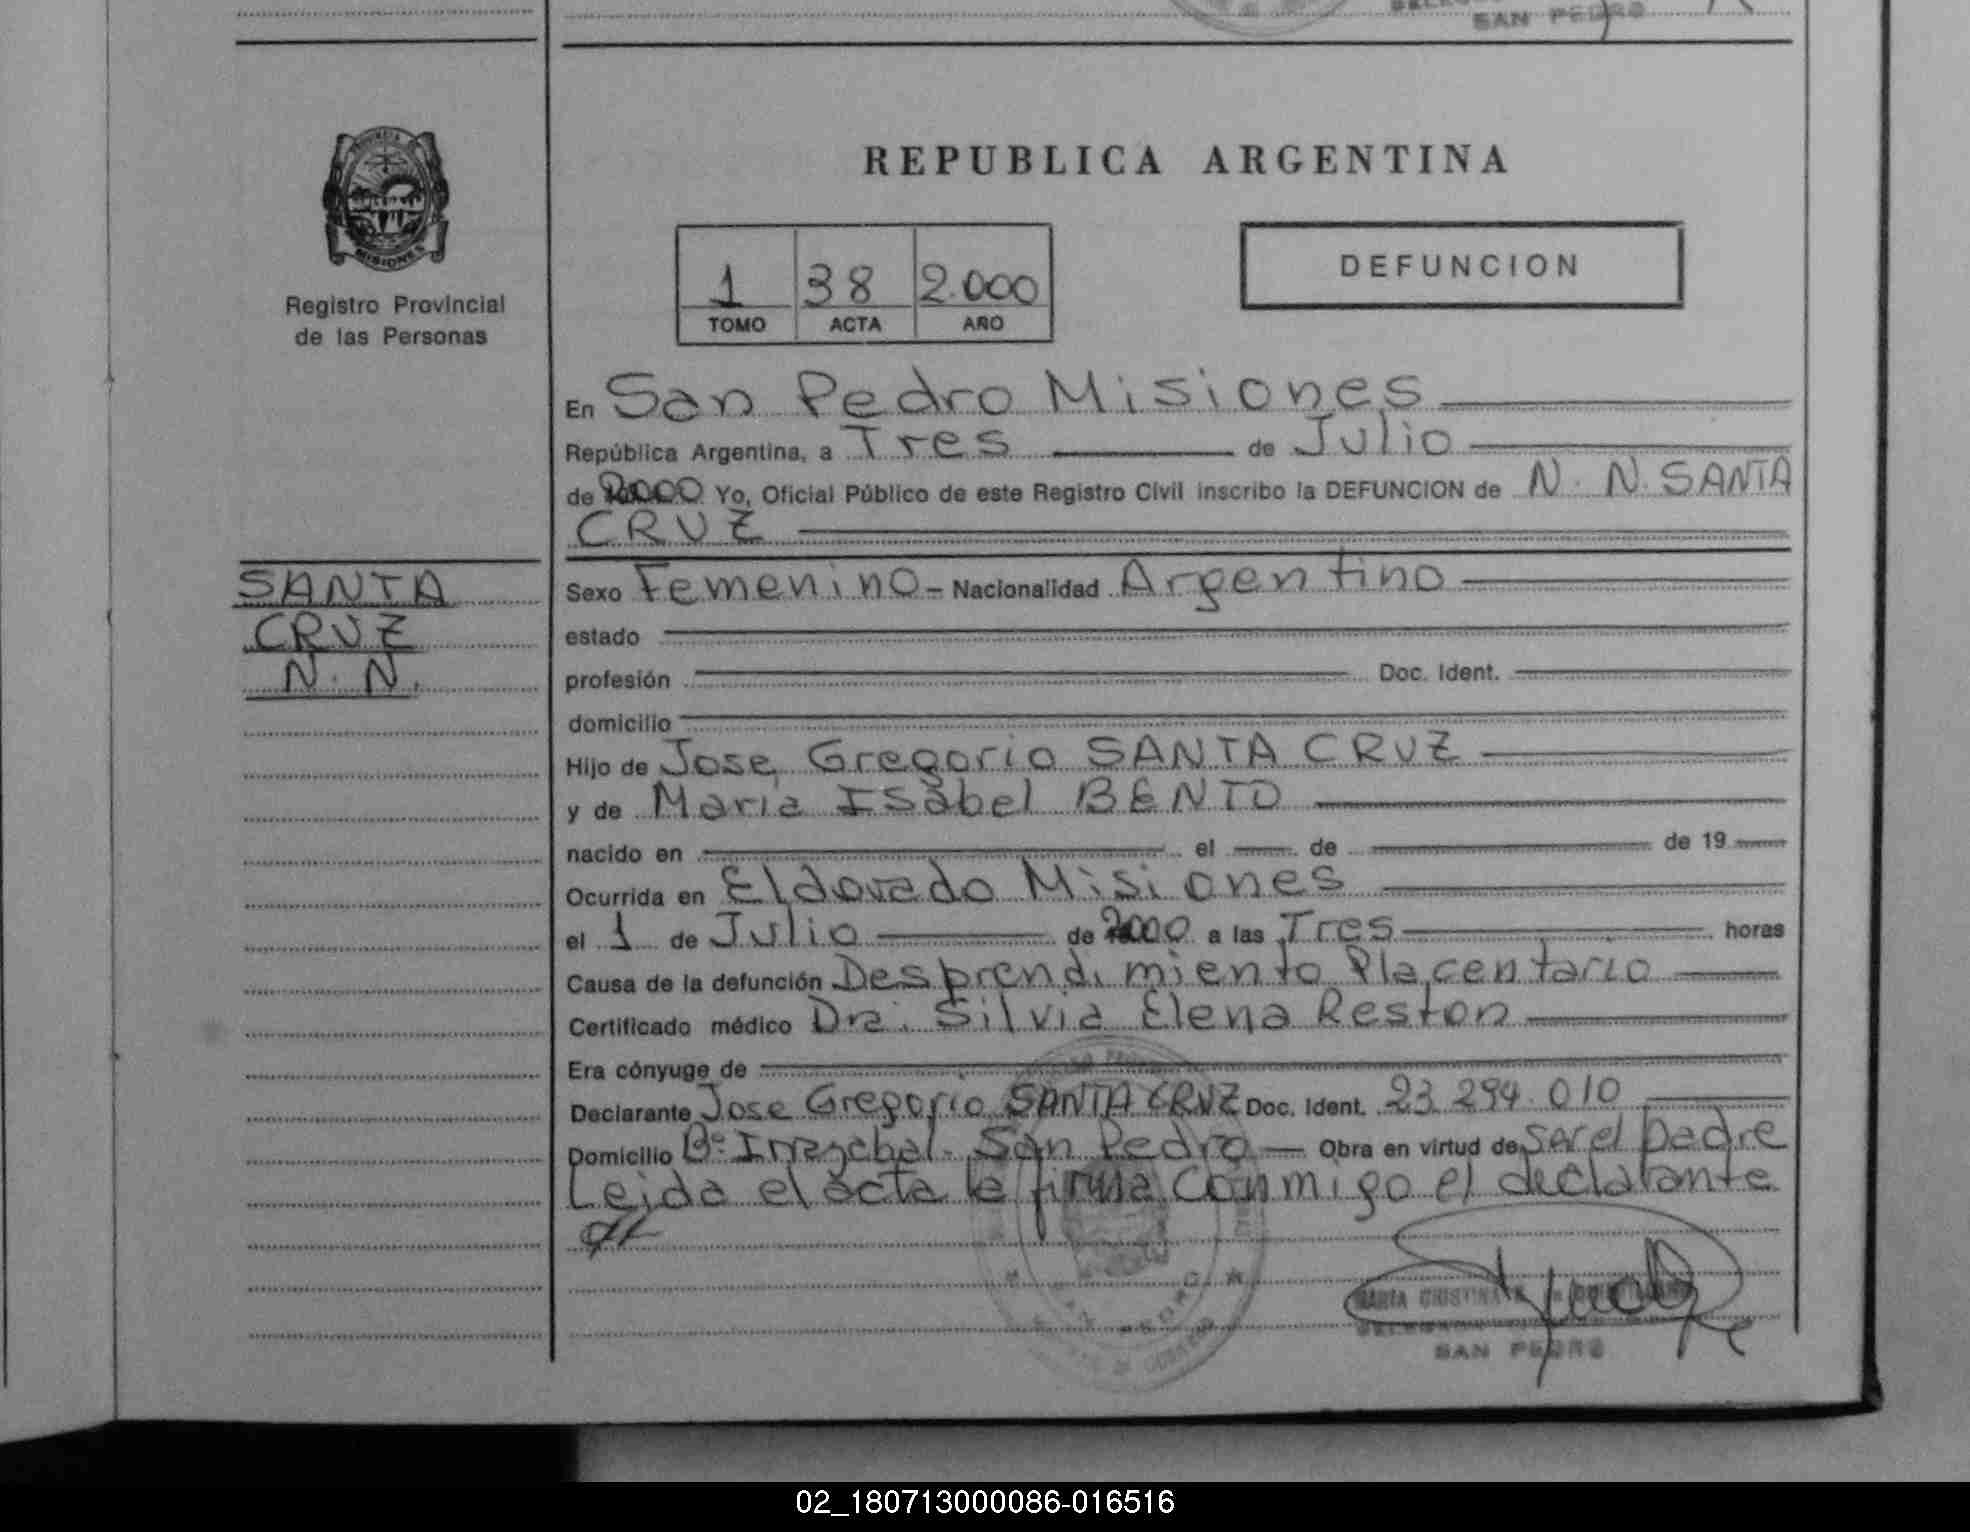 SAN PEDRO
PROVINCIA DE
MISIONES
Registro Provincial
de las Personas
REPUBLICA ARGENTINA
1 38 2.000
TOMO ACTA AÑO
DEFUNCION
En San Pedro Misiones
República Argentina, a Tres de Julio
de 2000 Yo, Oficial Público de este Registro Civil inscribo la DEFUNCION de N. N. SANTA
CRUZ
SANTA
CRUZ
N. N.
Sexo Femenino - Nacionalidad Argentino
estado
profesión Doc. Ident.
domicilio
Hijo de Jose Gregorio SANTA CRUZ
y de Maria Isabel BENTO
nacido en el de de 19
Ocurrida en Eldorado Misiones
el 1 de Julio de 2000 a las Tres horas
Causa de la defunción Desprendimiento Placentario
Certificado médico Dra. Silvia Elena Reston
Era cónyuge de
Declarante Jose Gregorio SANTA CRUZ Doc. Ident. 23.294.010
Domicilio Bº Irrazabal - San Pedro - Obra en virtud de ser el padre
Leida el acta la firma conmigo el declarante
MARIA CRISTINA
SAN PEDRO
SAN PEDRO
02_180713000086-016516